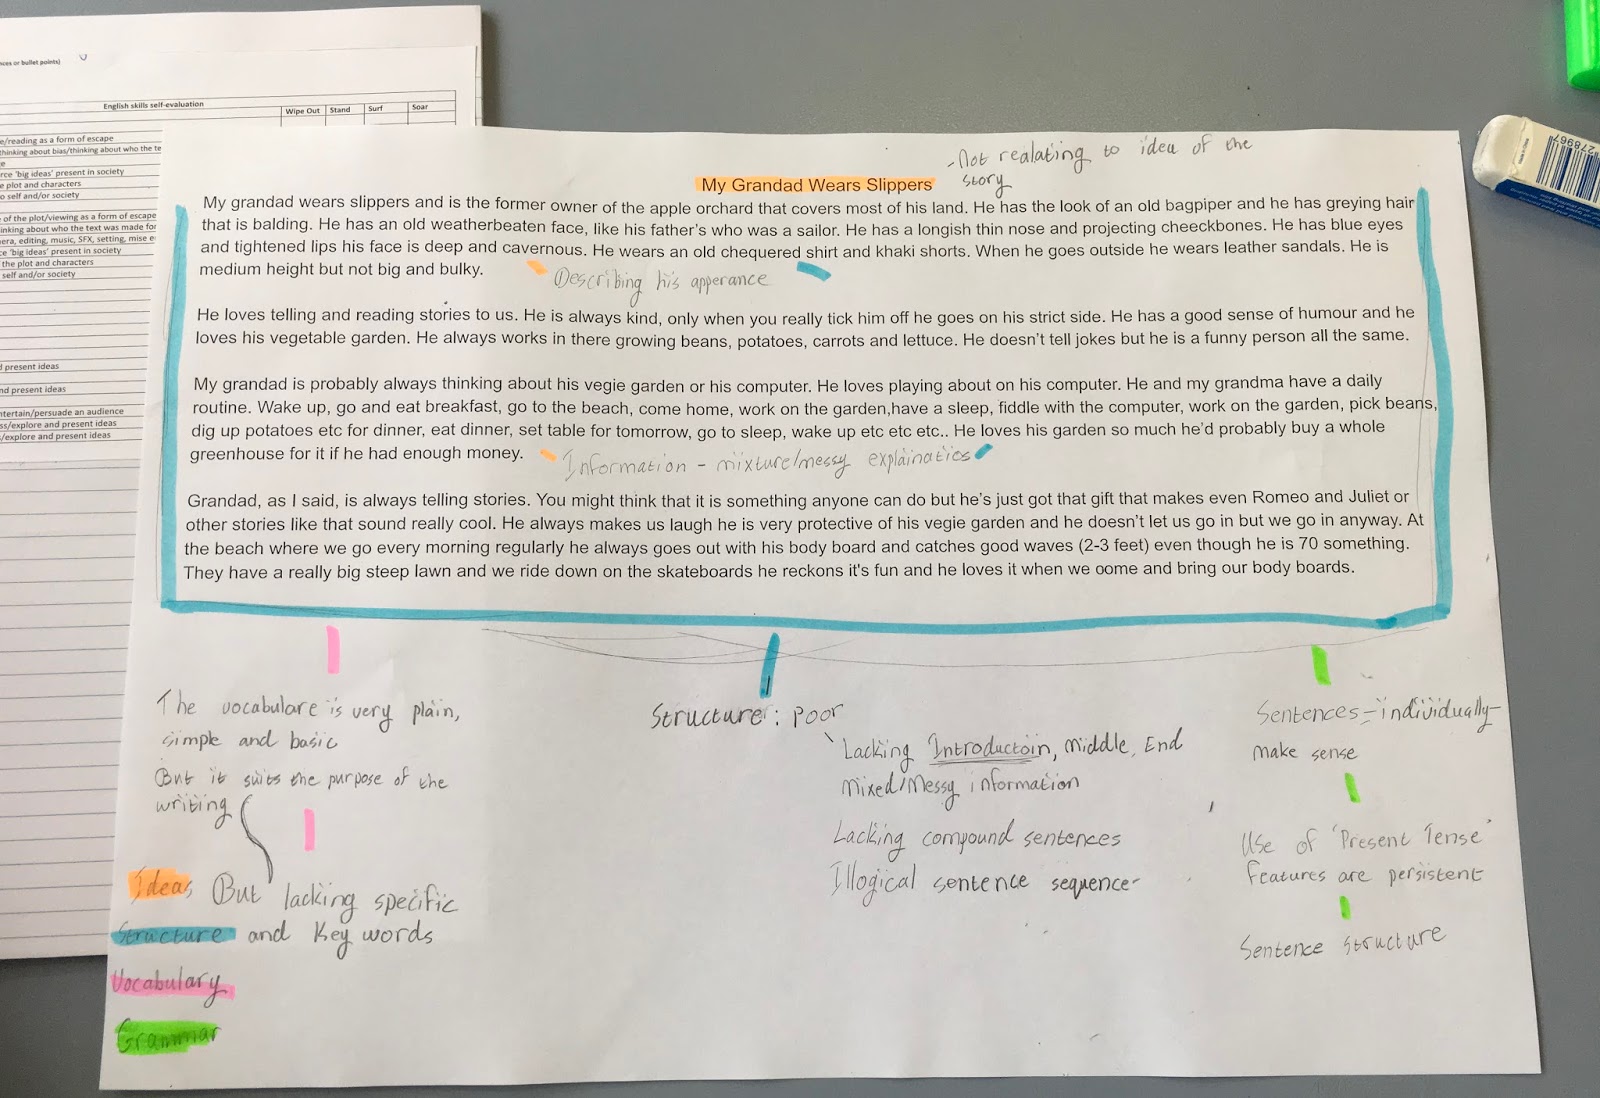 nces or bullet points)
English skills self-evaluation
Wipe Out Stand Surf Soar
e/reading as a form of escape
thinking about bias/thinking about who the te
e
rce 'big ideas' present in society
e plot and characters
o self and/or society
of the plot/viewing as a form of escape
inking about who the text was made for
era, editing, music, SFX, setting, mise e
ce 'big ideas' present in society
the plot and characters
self and/or society
d present ideas
nd present ideas
ntertain/persuade an audience
ss/explore and present ideas
s/explore and present ideas
278967
- Not realating to idea of the
story
My Grandad Wears Slippers
My grandad wears slippers and is the former owner of the apple orchard that covers most of his land. He has the look of an old bagpiper and he has greying hair
that is balding. He has an old weatherbeaten face, like his father's who was a sailor. He has a longish thin nose and projecting cheeckbones. He has blue eyes
and tightened lips his face is deep and cavernous. He wears an old chequered shirt and khaki shorts. When he goes outside he wears leather sandals. He is
medium height but not big and bulky.
Describing his apperance
He loves telling and reading stories to us. He is always kind, only when you really tick him off he goes on his strict side. He has a good sense of humour and he
loves his vegetable garden. He always works in there growing beans, potatoes, carrots and lettuce. He doesn't tell jokes but he is a funny person all the same.
My grandad is probably always thinking about his vegie garden or his computer. He loves playing about on his computer. He and my grandma have a daily
routine. Wake up, go and eat breakfast, go to the beach, come home, work on the garden,have a sleep, fiddle with the computer, work on the garden, pick beans,
dig up potatoes etc for dinner, eat dinner, set table for tomorrow, go to sleep, wake up etc etc etc.. He loves his garden so much he'd probably buy a whole
greenhouse for it if he had enough money.
Information - mixture/messy explainatios
Grandad, as I said, is always telling stories. You might think that it is something anyone can do but he's just got that gift that makes even Romeo and Juliet or
other stories like that sound really cool. He always makes us laugh he is very protective of his vegie garden and he doesn't let us go in but we go in anyway. At
the beach where we go every morning regularly he always goes out with his body board and catches good waves (2-3 feet) even though he is 70 something.
They have a really big steep lawn and we ride down on the skateboards he reckons it's fun and he loves it when we oome and bring our body boards.
The vocabulare is very plain,
simple and basic
But it suits the purpose of the
writing
But lacking specific
and Key words
Ideas
Structure
Vocabulary
Grammar
Structure : Poor
Lacking Introductoin, Middle, End
Mixed/Messy information
Lacking compound sentences
Illogical sentence sequence
Sentences - individually -
make sense
Use of 'Present Tense'
features are persistent
Sentence structure